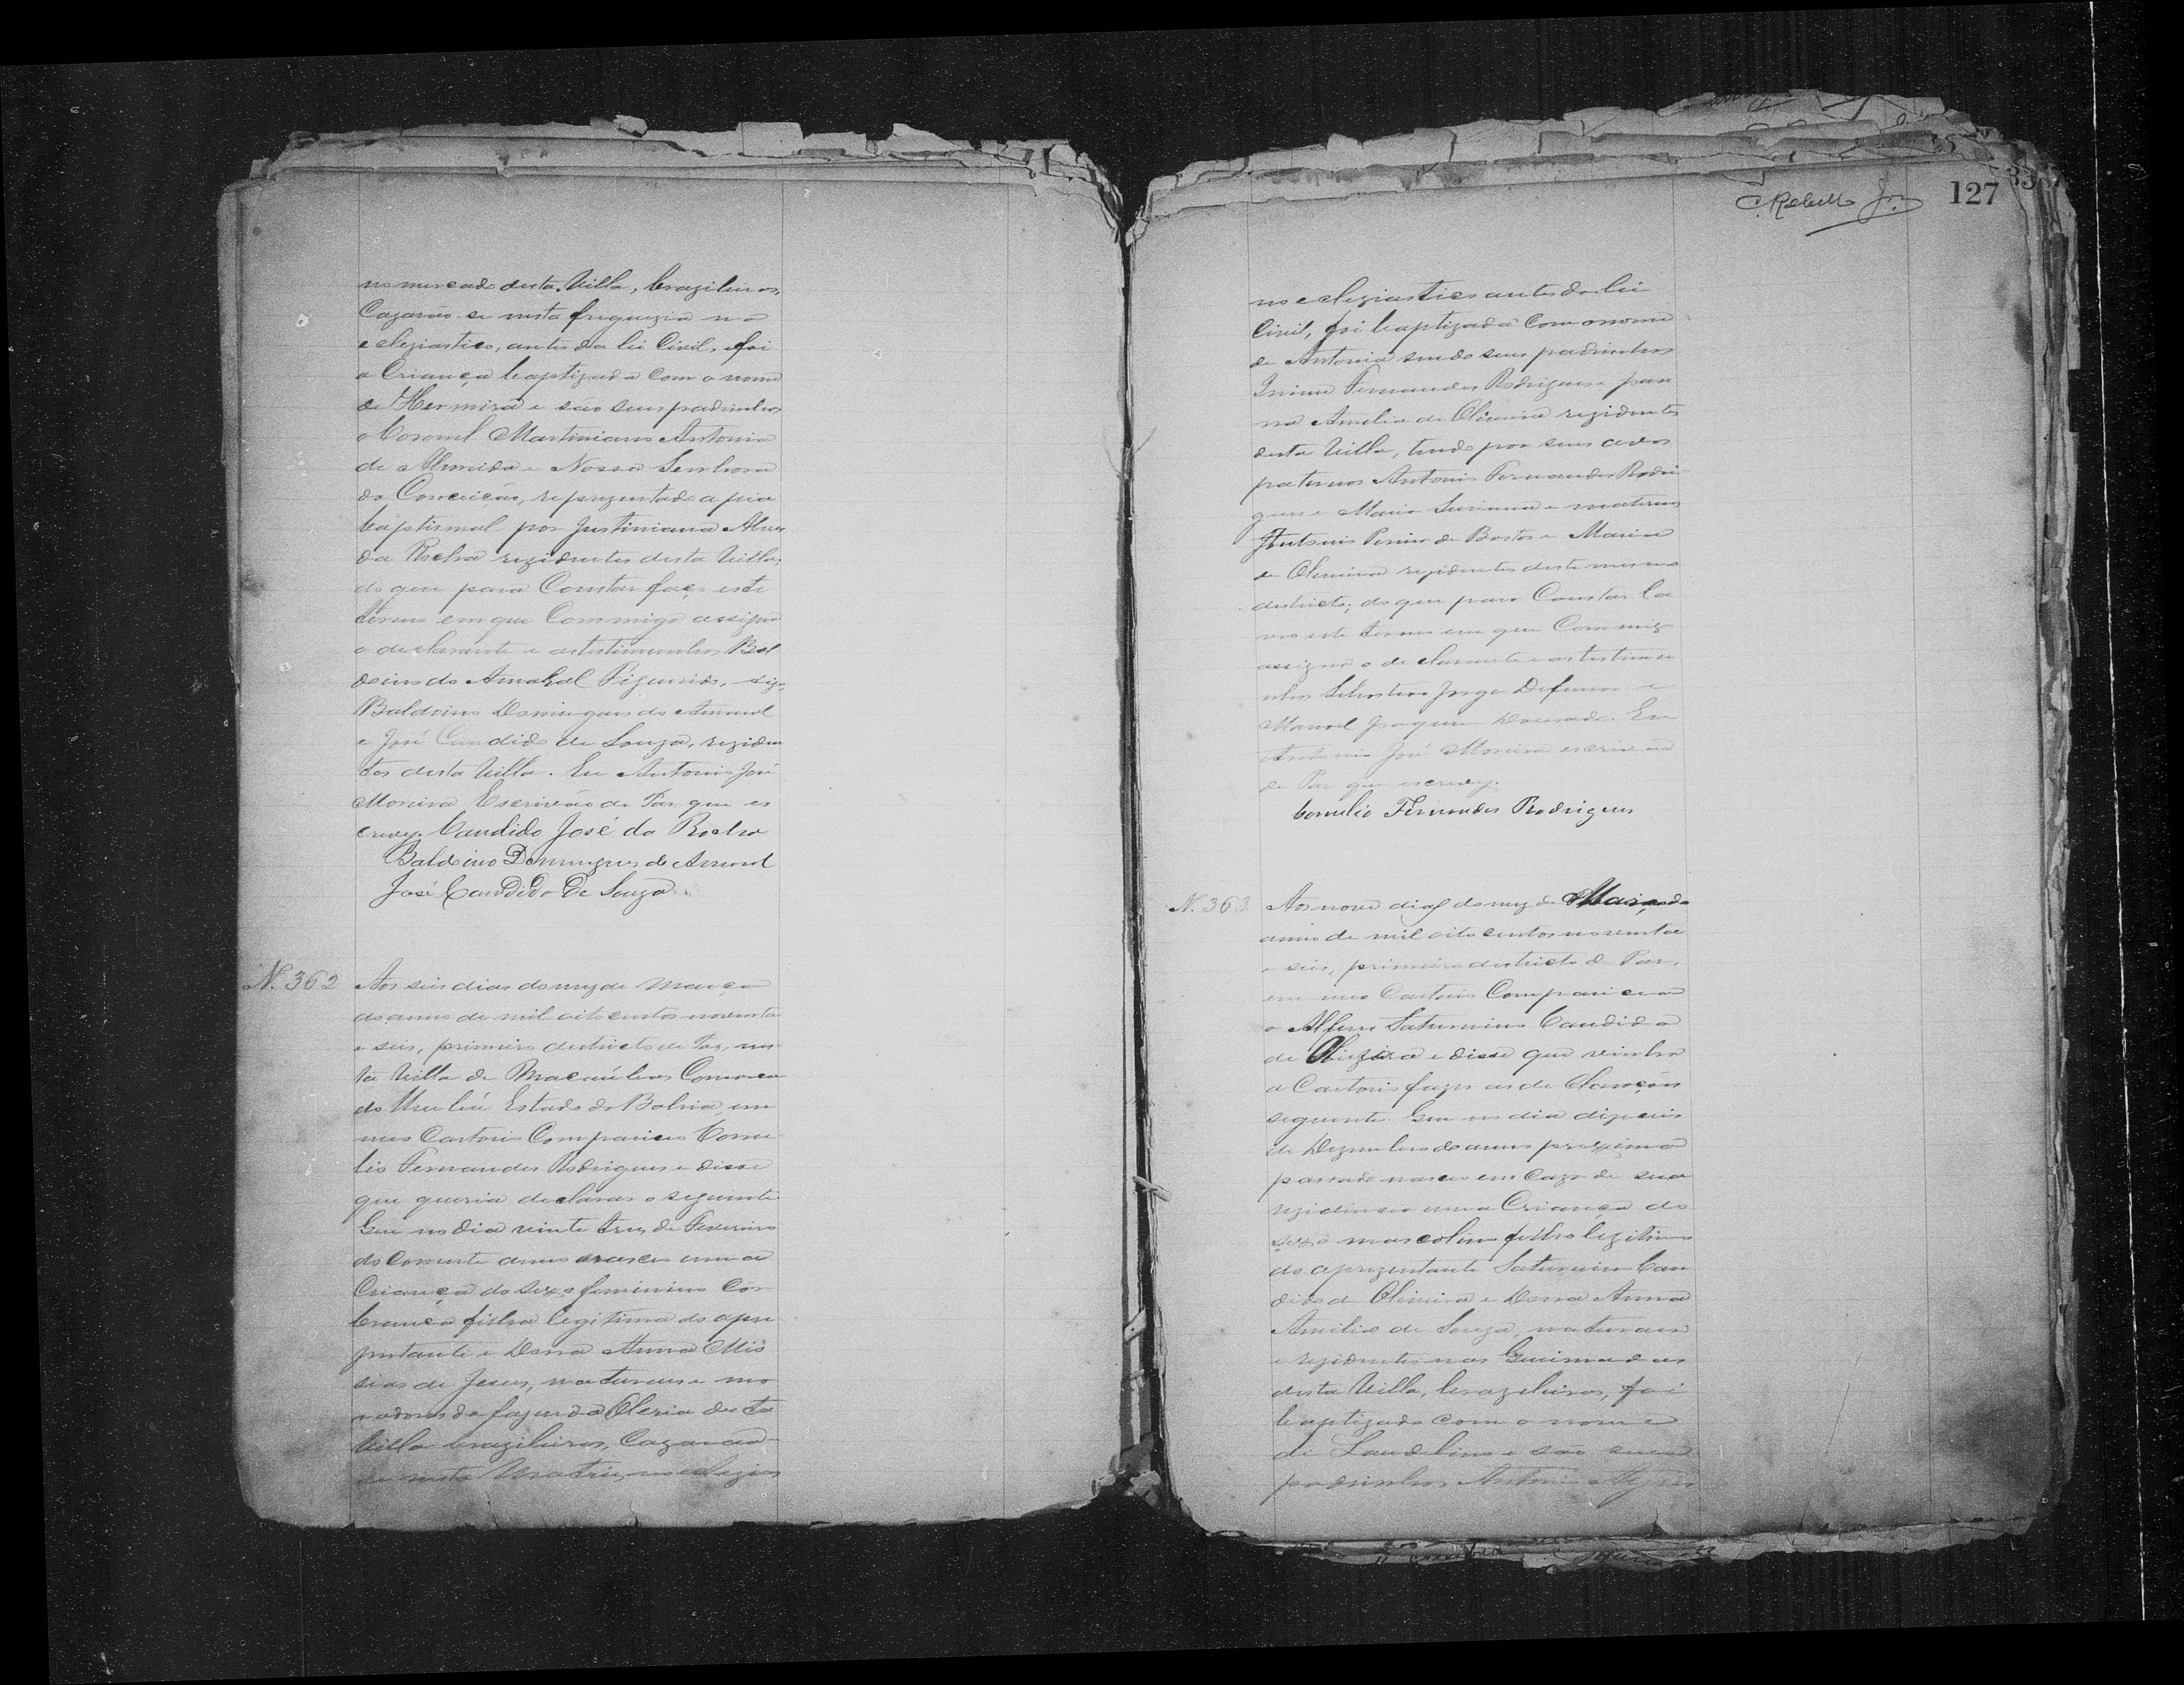 no mercado desta Villa, brazileiros,
Cazarão-se nesta freguezia no
ecleziastico, antes da lei Civil, e foi
a Criança baptizada com o nome
de Hermira e são seus padrinhos
o Coronel Martiniano Antonio
de Almeida e Nossa Senhora
da Conceição, reprezentada a pia
baptismal por Justiniana Alves
da Rocha rezidentes desta Villa;
do que para Constar faço este
termo em que Commigo assigna
o declarante e as testimunhas Bal
doino do Amaral Figueiredo, digo,
Baldoino Domingues do Amaral
e José Candido de Souza, reziden
tes desta Villa. Eu Antonio José
Moreira Escrivão de Paz que es
crevy. Candido José da Rocha
Baldoino Domingues do Amaral
José Candido de Souza
N. 362
Aos seis dias do mez de Março
do anno de mil oito centos noventa
e seis, primeiro destricto de Paz, nes
ta Villa de Macaúbas Comarca
do Urubú Estado da Bahia, em
meo Cartorio Compareceo Corne
lio Fernandes Rodrigues e disse
que queria declarar o seguinte
Que no dia vinte tres de Fevereiro
do corrente anno nasceo uma
Criança do sexo feminino Côr
branca filha legitima do apre
zentante e Dona Anna Mis
sias de Jesus, naturaes e mo
radores da fazenda Oleria desta
Villa brazileiros, Cazarão-
se nesta Matriz, no eclezias
C. Rebello Jr.
127
no eclegiastico antes da lei
Civil, foi baptizada com o nome
de Antonia sendo seus padrinhos
Fernandes Rodrigues e Joan
na Amelia de Oliveira rezidentes
desta Villa, tendo por seus avós
paternos Antonio Fernandes Rodri
gues e Maria e maternos
Antonio Pereira de Bastos e Maria
de Oliveira rezidentes deste mesmo
destricto; do que para Constar la
vro este termo em que Commigo
assigna o declarante e as testimu
nhas Jorge e
Manoel Joaquim Dourado. Eu
Antonio José Moreira escrivão
de Paz que escrevy.
Cornelio Fernandes Rodrigues
N. 363
Aos nove dias do mez de Março do
anno de mil oito centos noventa
e seis, primeiro destricto de Paz,
em meo Cartorio Compareceo
o Alferes Saturnino Candido
de Oliveira e disse que vinha
a Cartorio fazer as declarações
seguinte. Que no dia dezeseis
de Dezembro do anno proximo
passado nasceo em Caza de sua
rezidencia uma Criança do
sexo mascolino filho legitimo
do aprezentante Saturnino Can
dido de Oliveira e Dona Anna
Amelia de Souza, naturaes
e rezidentes nas Queimadas
desta Villa, brazileiros, foi
baptizado com o nome
de Laudelino e são seus
padrinhos Antonio